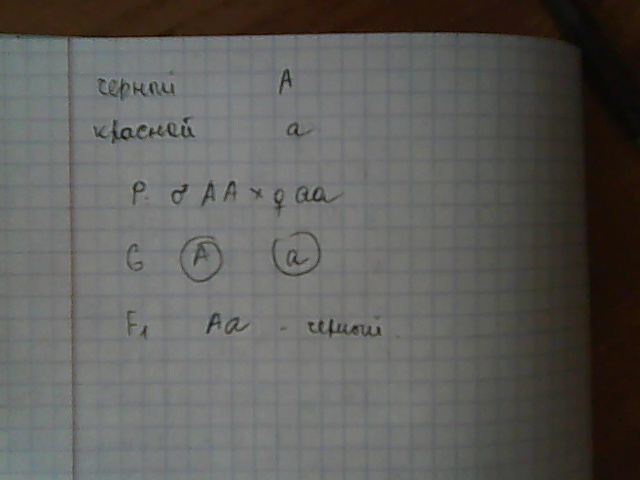 черный A
красный a
P. ♂ AA × ♀ aa
G A a
F1 Aa - черный.